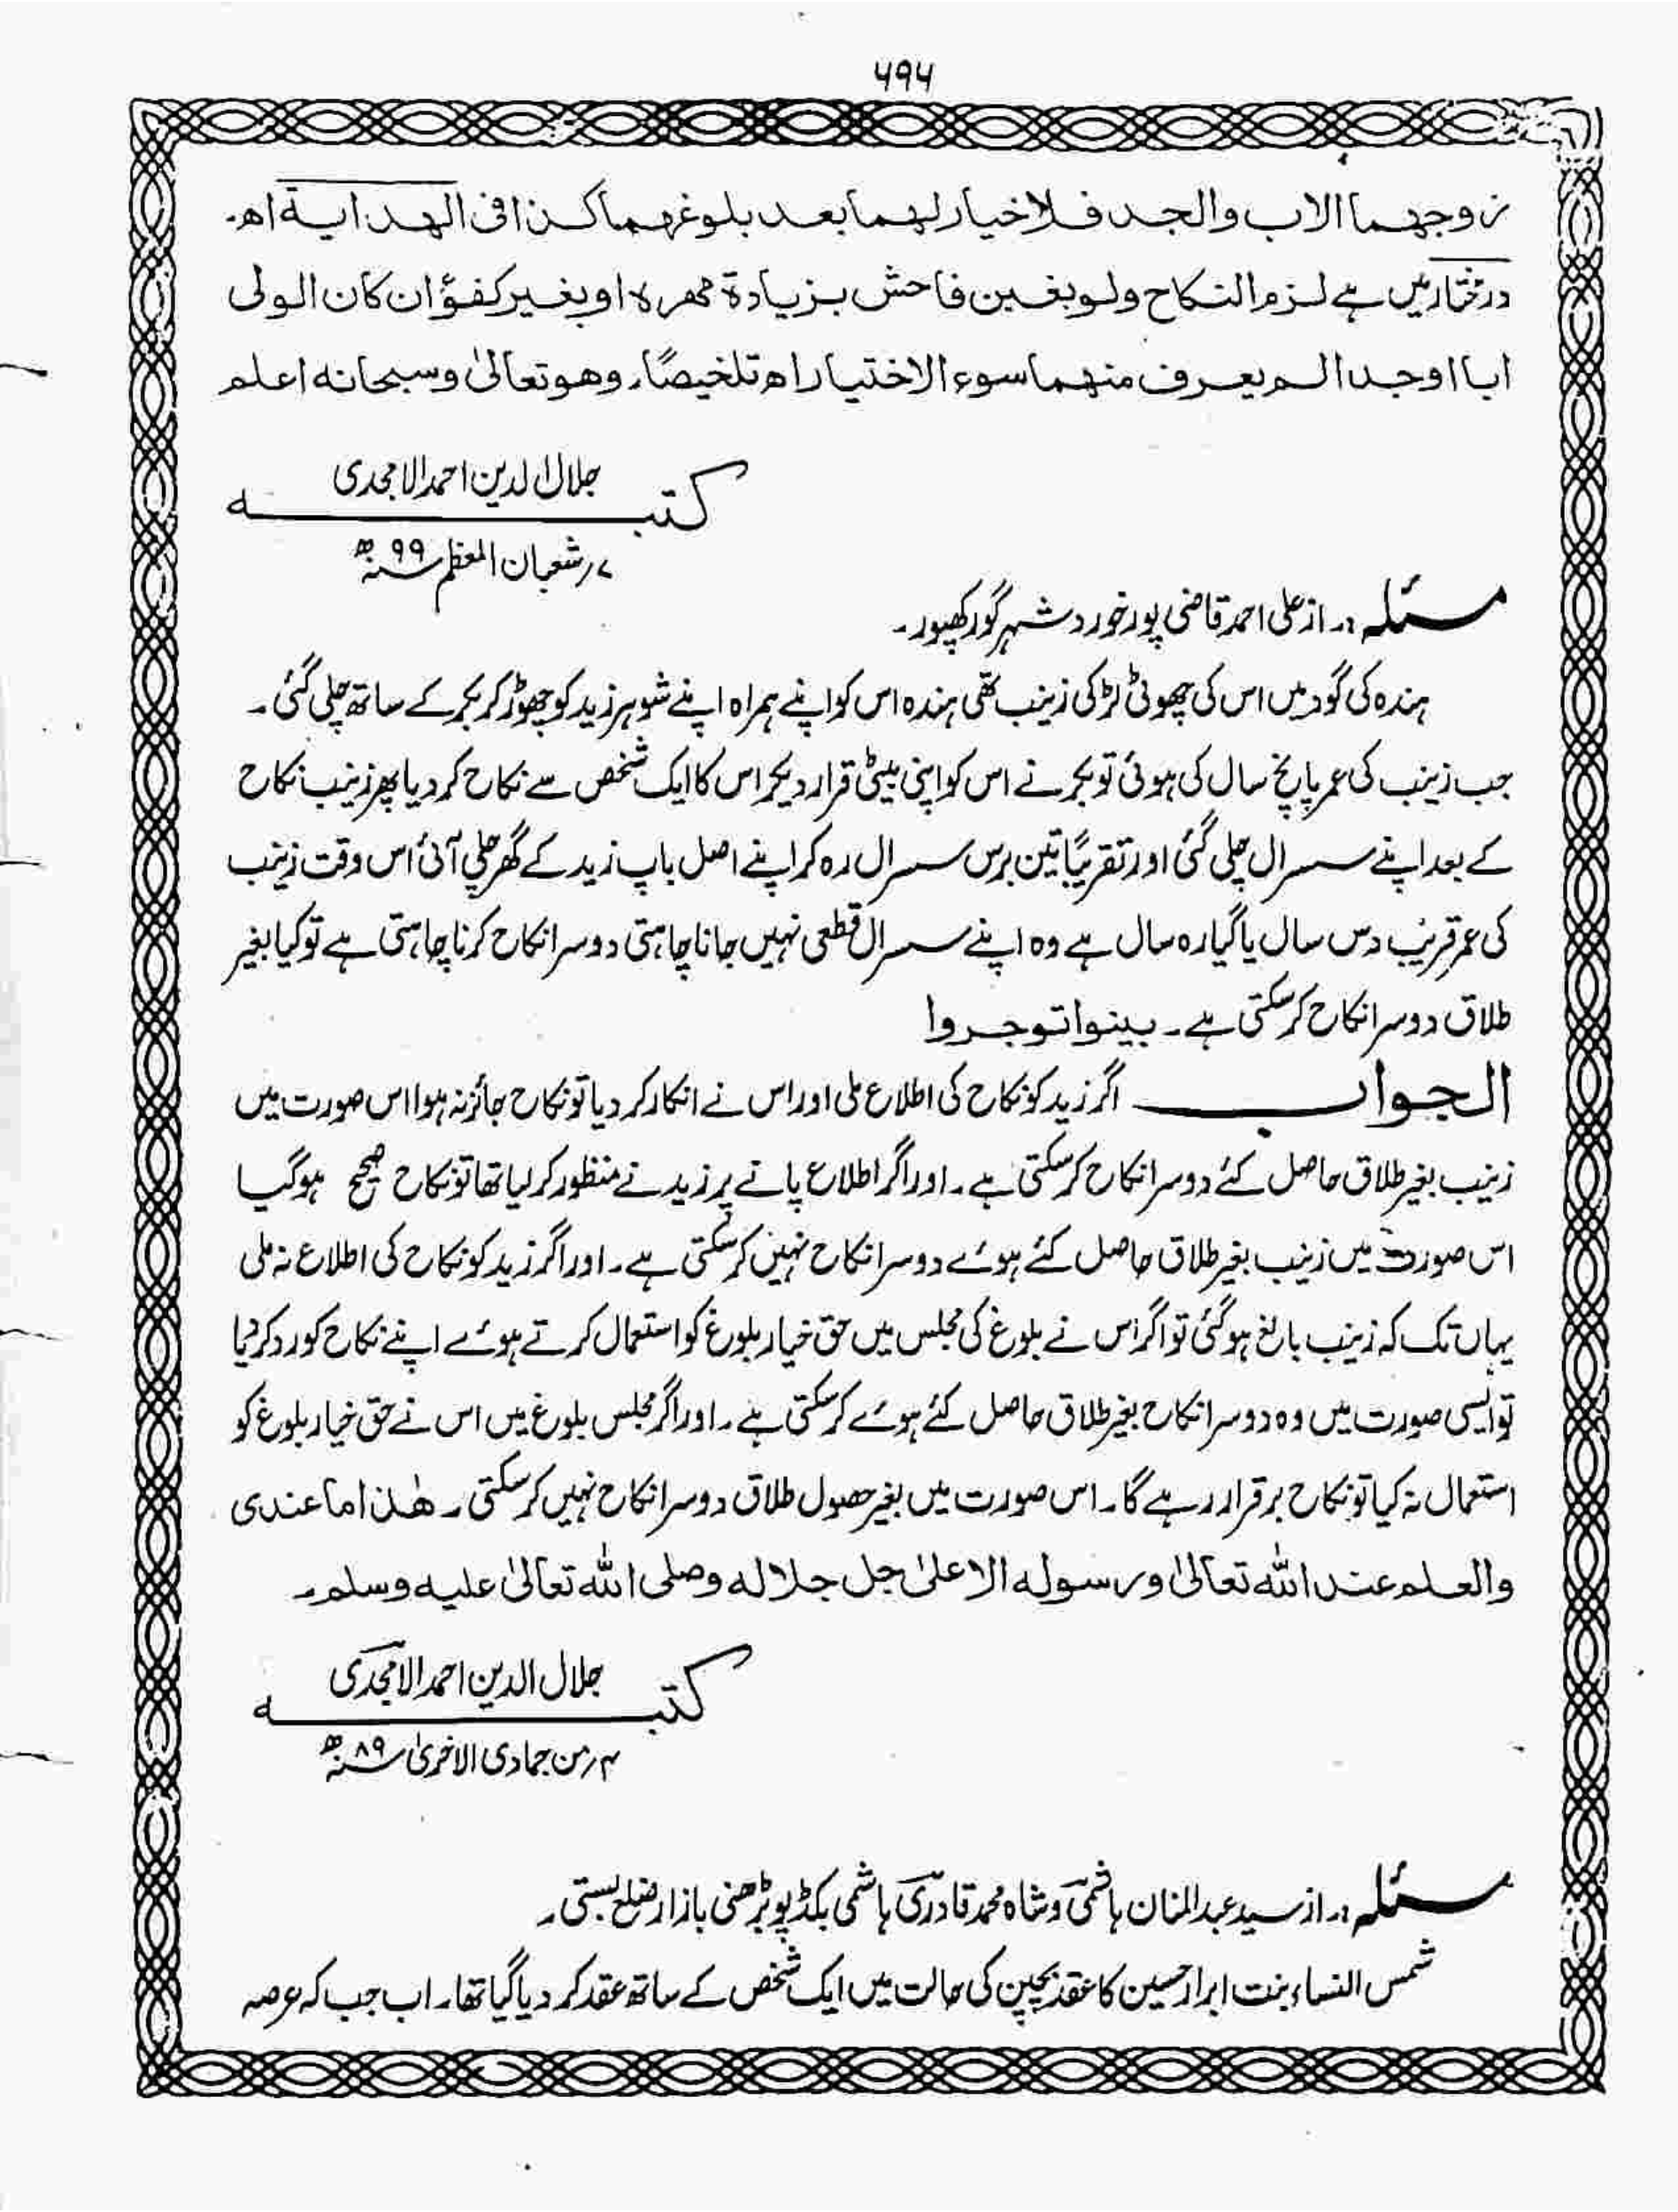 ۶۹۶
زوجہما الاب والجد فلا خیار لہما بعد بلوغہما کذا فی الہدایۃ اھ۔
درمختار میں ہے لزم النکاح ولو بغبن فاحش بزیادۃ مہرہ او بغیر کفؤ ان کان الولی
ابا او جدا لم یعرف منہما سوء الاختیار اھ تلخیصًا۔ وھو تعالیٰ وسبحانہ اعلم
جلال الدین احمد الامجدی
کتبہ
۷؍ شعبان المعظم سنہ ۹۹ ھ
مسئلہ :۔ از علی احمد قاضی پور خورد شہر گورکھپور۔
ہندہ کی گود میں اس کی چھوٹی لڑکی زینب تھی ہندہ اس کو اپنے ہمراہ اپنے شوہر زید کو چھوڑ کر بکر کے ساتھ چلی گئی۔
جب زینب کی عمر پانچ سال کی ہوئی تو بکر نے اس کو اپنی بیٹی قرار دیکر اس کا ایک شخص سے نکاح کر دیا پھر زینب نکاح
کے بعد اپنے سسرال چلی گئی اور تقریبًا تین برس سسرال رہ کر اپنے اصل باپ زید کے گھر چلی آئی اس وقت زینب
کی عمر قریب دس سال یا گیارہ سال ہے وہ اپنے سسرال قطعی نہیں جانا چاہتی دوسرا نکاح کرنا چاہتی ہے تو کیا بغیر
طلاق دوسرا نکاح کر سکتی ہے۔ بینوا توجروا
الجواب اگر زید کو نکاح کی اطلاع ملی اور اس نے انکار کر دیا تو نکاح جائز نہ ہوا اس صورت میں
زینب بغیر طلاق حاصل کئے دوسرا نکاح کر سکتی ہے۔ اور اگر اطلاع پانے پر زید نے منظور کر لیا تھا تو نکاح صحیح ہو گیا
اس صورت میں زینب بغیر طلاق حاصل کئے ہوئے دوسرا نکاح نہیں کر سکتی ہے۔ اور اگر زید کو نکاح کی اطلاع نہ ملی
یہاں تک کہ زینب بالغ ہو گئی تو اگر اس نے بلوغ کی مجلس میں حق خیار بلوغ کو استعمال کرتے ہوئے اپنے نکاح کو رد کر دیا
تو ایسی صورت میں وہ دوسرا نکاح بغیر طلاق حاصل کئے ہوئے کر سکتی ہے۔ اور اگر مجلس بلوغ میں اس نے حق خیار بلوغ کو
استعمال نہ کیا تو نکاح برقرار رہے گا۔ اس صورت میں بغیر حصول طلاق دوسرا نکاح نہیں کر سکتی۔ ھٰذا ما عندی
والعلم عند اللہ تعالیٰ ورسولہ الاعلیٰ جل جلالہ وصلی اللہ تعالیٰ علیہ وسلم۔
جلال الدین احمد الامجدی
کتبہ
۴؍ من جمادی الاخریٰ سنہ ۸۹ ھ
مسئلہ :۔ از سید عبدالمنان ہاشمی و شاہ محمد قادری ہاشمی بکڈپو بڑھنی بازار ضلع بستی۔
شمس النساء بنت ابرار حسین کا عقد بچپن کی حالت میں ایک شخص کے ساتھ عقد کر دیا گیا تھا۔ اب جب کہ عرصہ